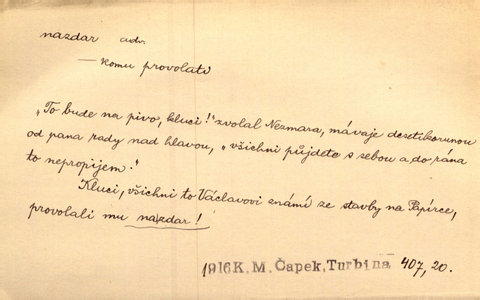 nazdar adv.
— komu provolati
„To bude na pivo, kluci!" zvolal Nezmara, mávaje desetikorunou
od pana rady nad hlavou, „všichni půjdete s sebou a do rána
to nepropijem."
Kluci, všichni to Václavovi známí ze stavby na Papírce,
provolali mu nazdar!
1916 K. M. Čapek, Turbina 407, 20.